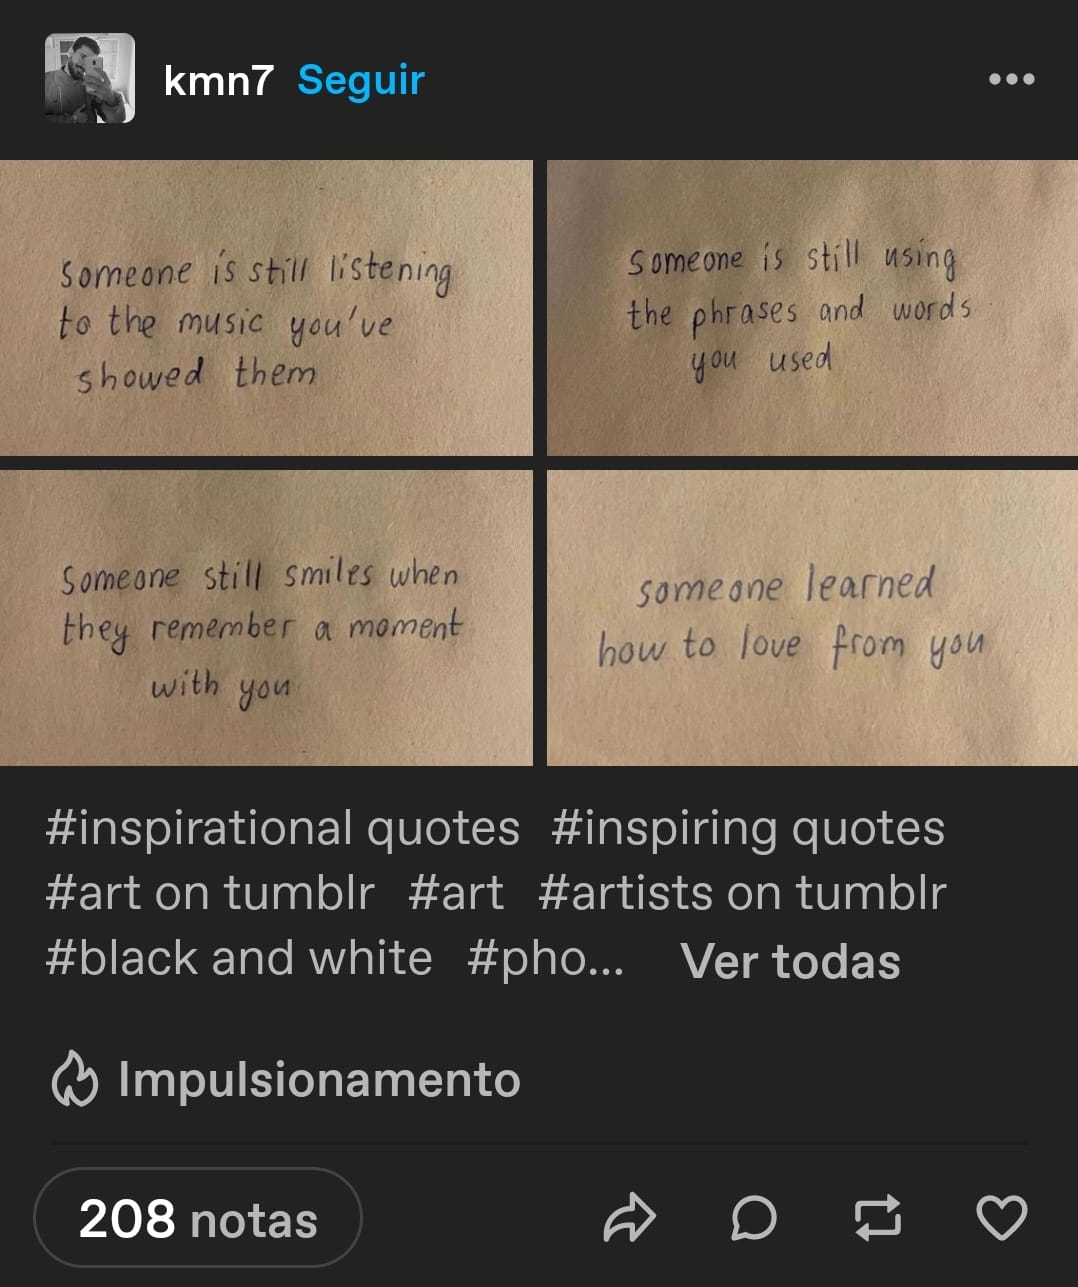 kmn7 Seguir
Someone is still listening
to the music you've
showed them
Someone is still using
the phrases and words
you used
Someone still smiles when
they remember a moment
with you
someone learned
how to love from you
#inspirational quotes #inspiring quotes
#art on tumblr #art #artists on tumblr
#black and white #pho... Ver todas
Impulsionamento
208 notas